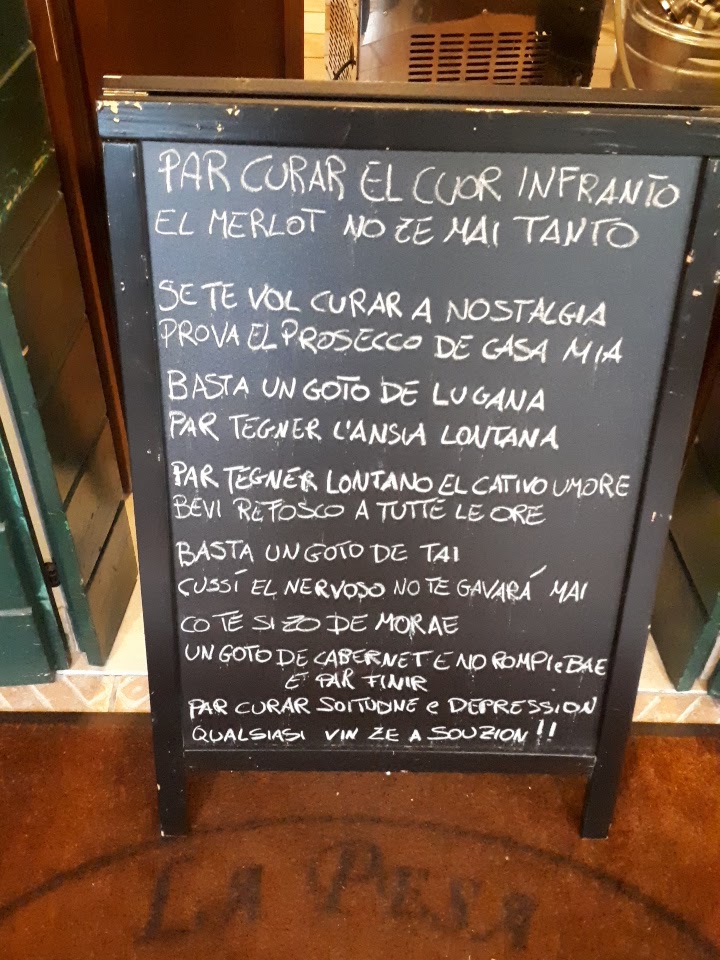 PAR CURAR EL CUOR INFRANTO
EL MERLOT NO ZE MAI TANTO
SE TE VOL CURAR A NOSTALGIA
PROVA EL PROSECCO DE CASA MIA
BASTA UN GOTO DE LUGANA
PAR TEGNER L'ANSIA LONTANA
PAR TEGNER LONTANO EL CATIVO UMORE
BEVI REFOSCO A TUTTE LE ORE
BASTA UN GOTO DE TAI
CUSSÍ EL NERVOSO NO TE GAVARÁ MAI
CO TE SI ZO DE MORAE
UN GOTO DE CABERNET E NO ROMPI e BAE
E PAR FINIR
PAR CURAR SOITUDINE e DEPRESSION
QUALSIASI VIN ZE A SOUZION!!
LA PESA